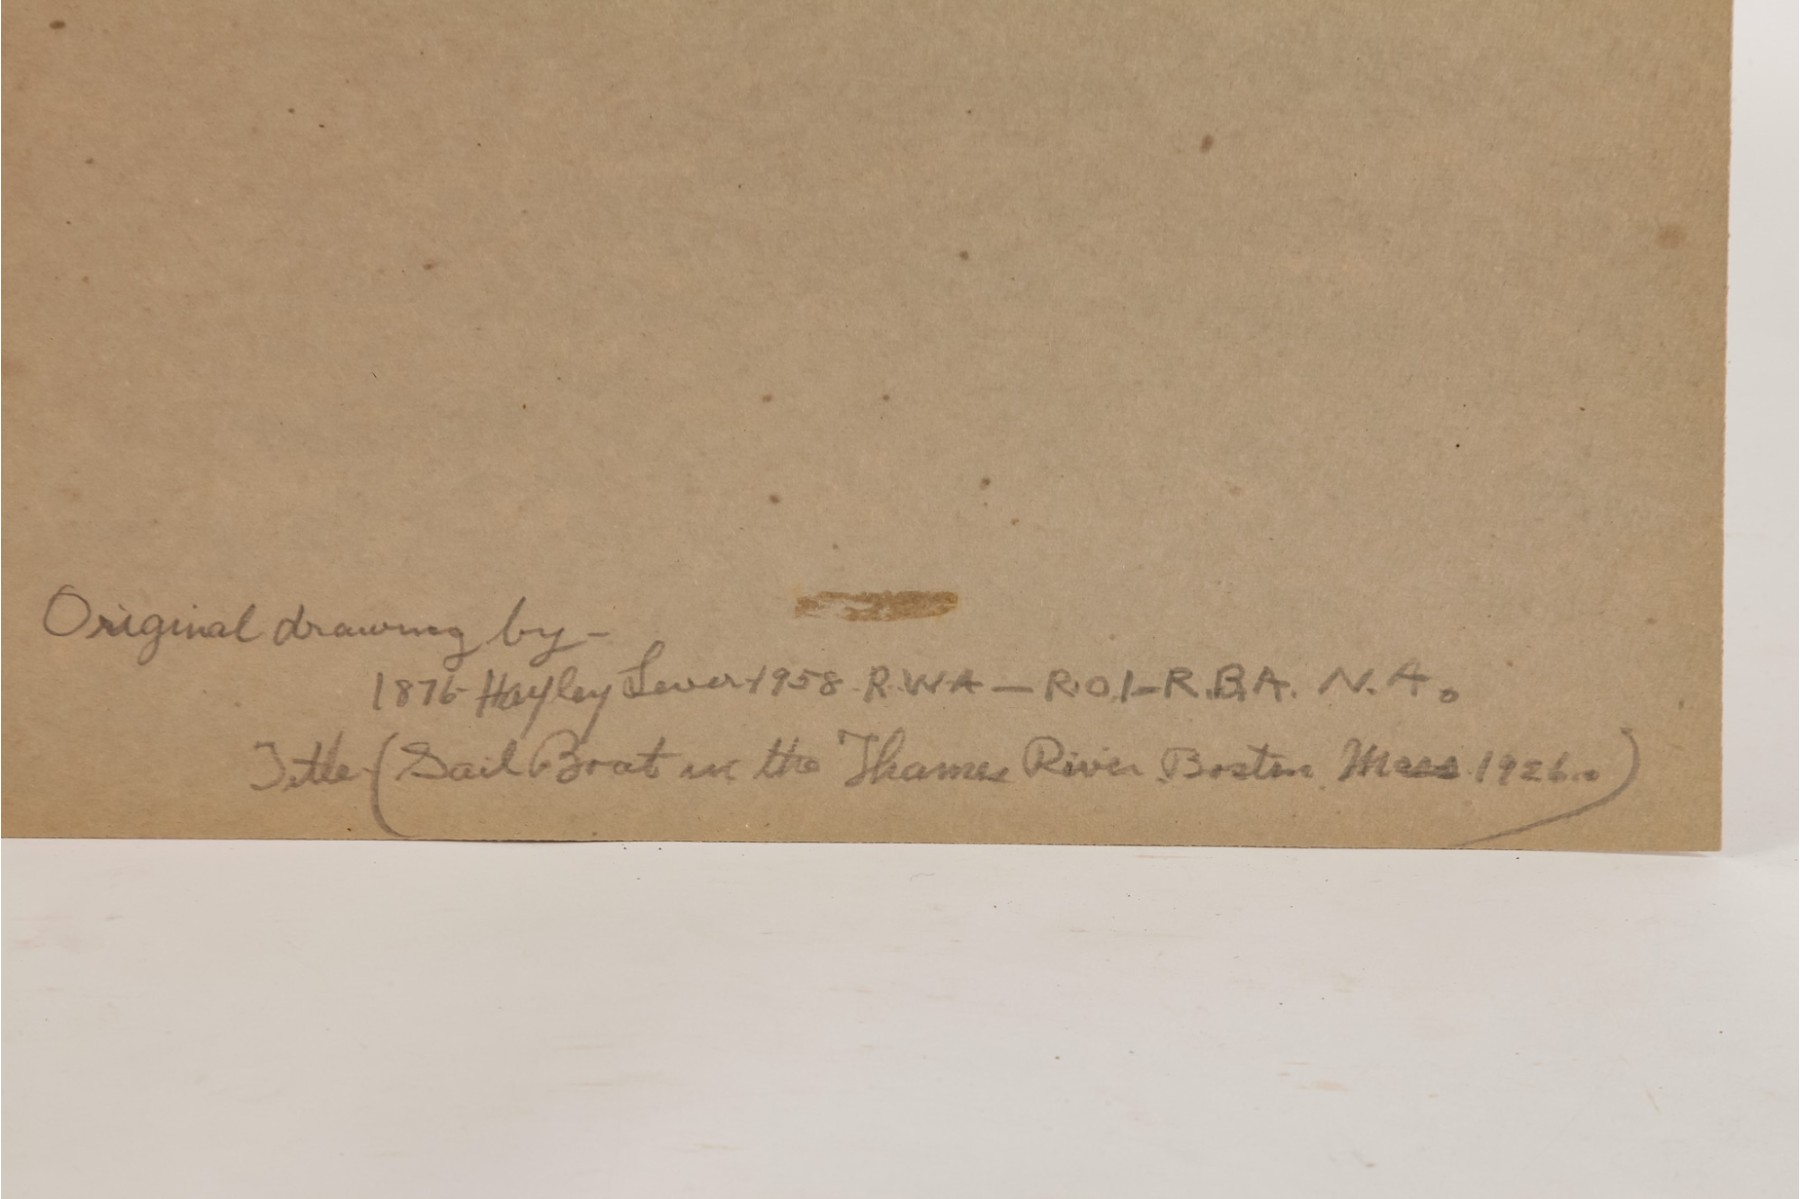 Original drawing by-
1876-Hayley Lever-1958 R.W.A - R.O.I-R.B.A. N.A.
Title-(Sail Boat in the Thames River Boston Mass 1926.)